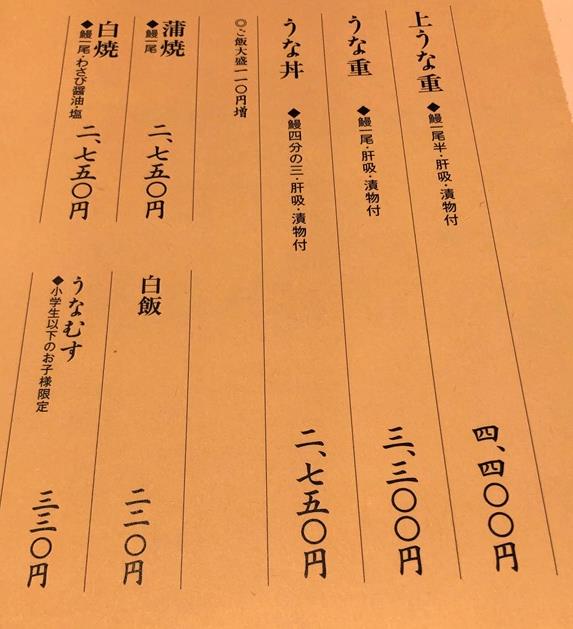 上うな重
◆鰻一尾半・肝吸・漬物付
四、四〇〇円
うな重
◆鰻一尾・肝吸・漬物付
三、三〇〇円
うな丼
◆鰻四分の三・肝吸・漬物付
二、七五〇円
◎ご飯大盛一一〇円増
蒲焼
◆鰻一尾
二、七五〇円
白焼
◆鰻一尾・わさび醤油・塩
二、七五〇円
白飯
二二〇円
うなむす
◆小学生以下のお子様限定
三三〇円